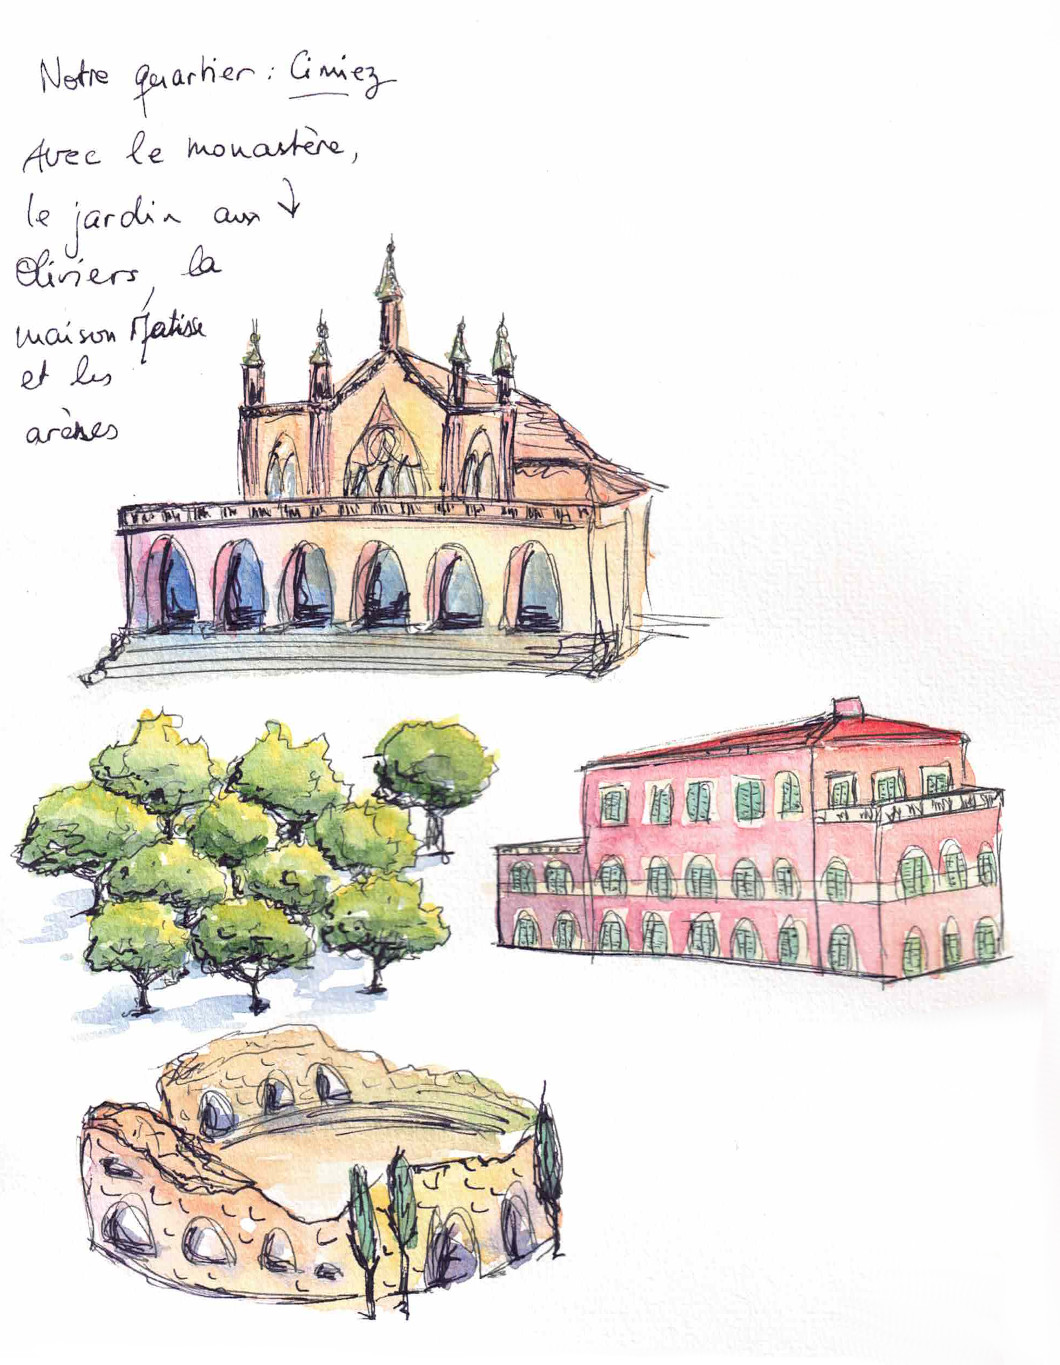 Notre quartier : Cimiez
Avec le monastère,
le jardin aux
Oliviers, la
maison Matisse
et les
arènes